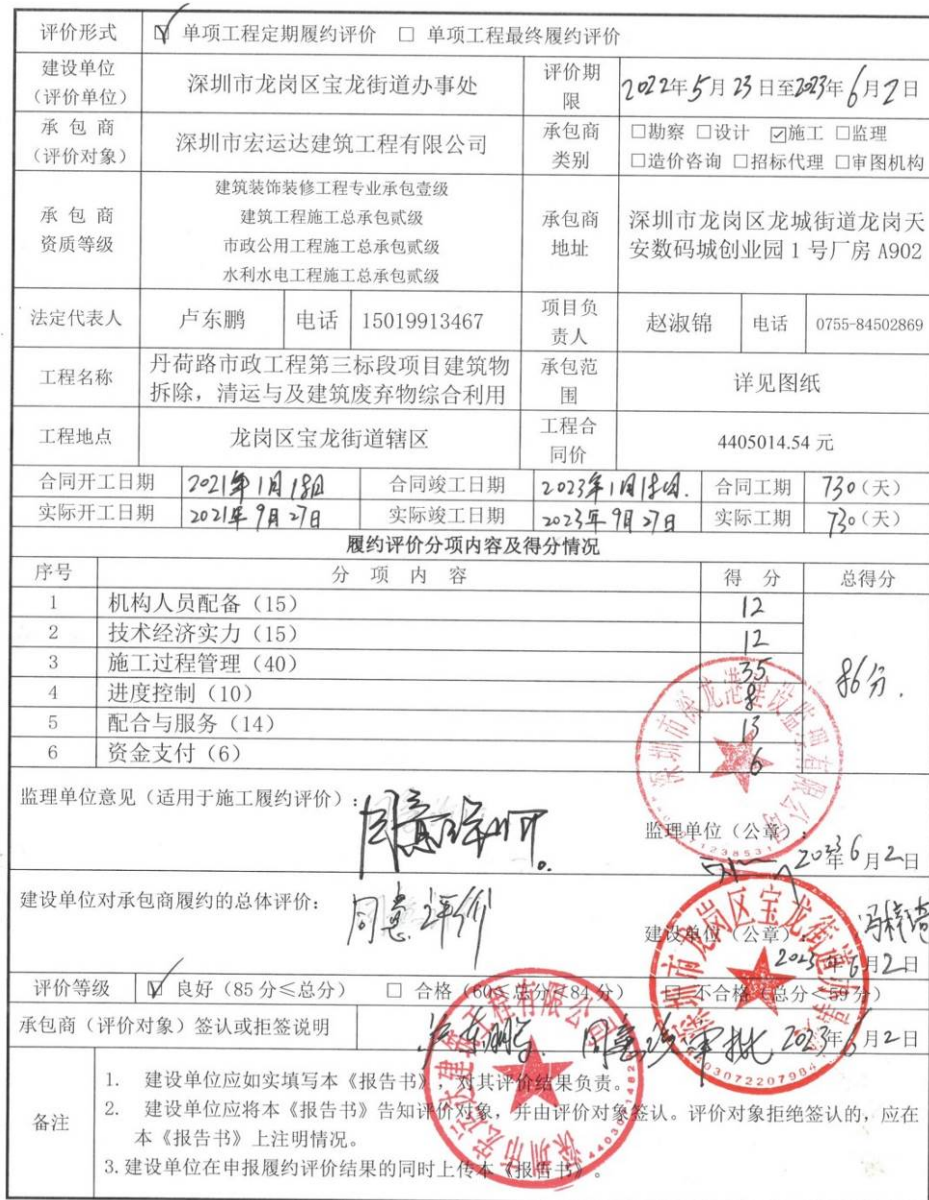 评价形式 ☑ 单项工程定期履约评价 □ 单项工程最终履约评价
建设单位（评价单位） 深圳市龙岗区宝龙街道办事处 评价期限 2022年5月23日至2023年6月2日
承包商（评价对象） 深圳市宏运达建筑工程有限公司 承包商类别 □勘察 □设计 ☑施工 □监理
□造价咨询 □招标代理 □审图机构
承包商资质等级 建筑装饰装修工程专业承包壹级
建筑工程施工总承包贰级
市政公用工程施工总承包贰级
水利水电工程施工总承包贰级
承包商地址 深圳市龙岗区龙城街道龙岗天
安数码城创业园 1 号厂房 A902
法定代表人 卢东鹏 电话 15019913467 项目负责人 赵淑锦 电话 0755-84502869
工程名称 丹荷路市政工程第三标段项目建筑物
拆除，清运与及建筑废弃物综合利用
承包范围 详见图纸
工程地点 龙岗区宝龙街道辖区 工程合同价 4405014.54 元
合同开工日期 2021年1月18日 合同竣工日期 2023年1月18日. 合同工期 730（天）
实际开工日期 2021年9月27日 实际竣工日期 2023年9月27日 实际工期 730（天）
履约评价分项内容及得分情况
序号 分 项 内 容 得 分 总得分
1 机构人员配备（15） 12
2 技术经济实力（15） 12
3 施工过程管理（40） 35
4 进度控制（10） 8
5 配合与服务（14） 13
6 资金支付（6） 6
86分.
监理单位意见（适用于施工履约评价）：
同意
监理单位（公章）：
2023年6月2日
建设单位对承包商履约的总体评价：
同意评价
建设单位（公章）：
2023年6月2日
评价等级 ☑ 良好（85 分≤总分） □ 合格（60≤总分<84 分） □ 不合格（总分<59 分）
承包商（评价对象）签认或拒签说明 同意 审批 2023年6月2日
备注
1. 建设单位应如实填写本《报告书》，对其评价结果负责。
2. 建设单位应将本《报告书》告知评价对象，并由评价对象签认。评价对象拒绝签认的，应在
本《报告书》上注明情况。
3.建设单位在申报履约评价结果的同时上传本《报告书》。